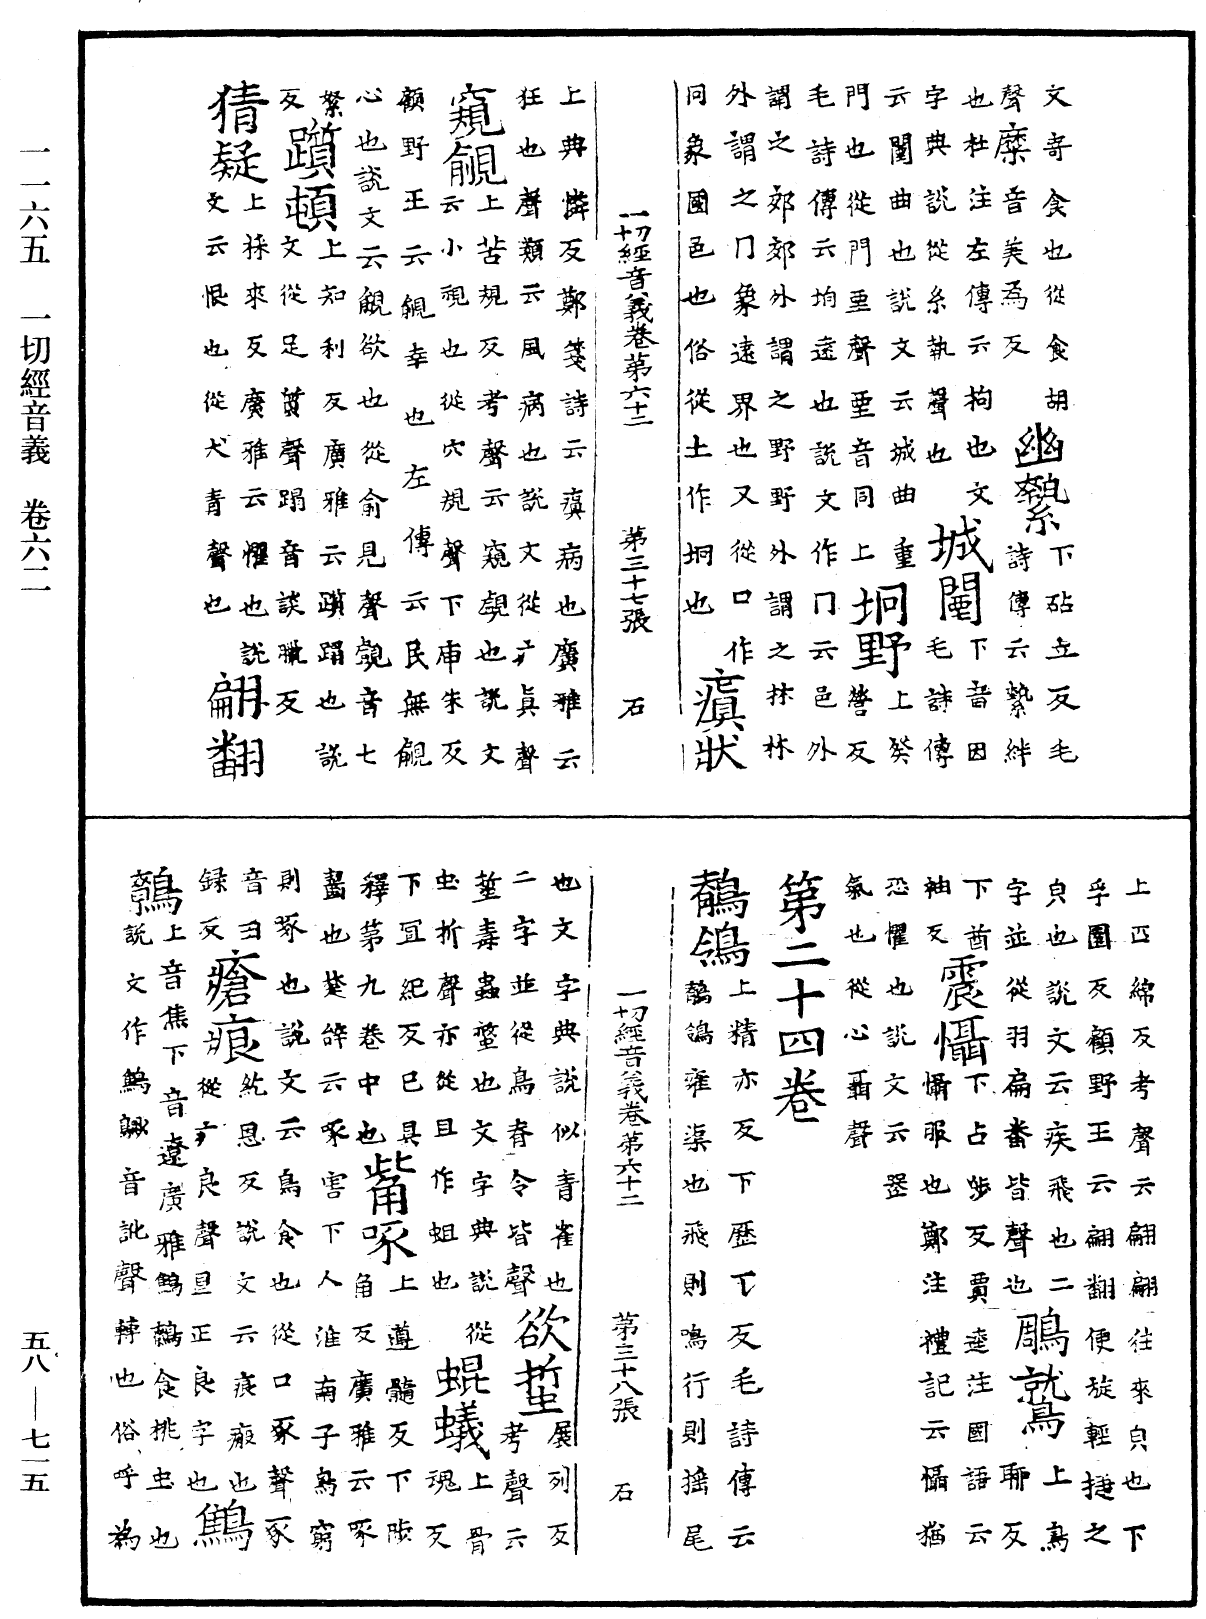 一一六五　一切經音義　卷六二
文奇食也從食胡
聲糜音美為反　幽縶下砧立反毛詩傳云縶絆
也杜注左傳云拘也文字典說從糸執聲也　城闉下音因毛詩傳
云闉曲也說文云城曲重門也從門垔聲垔音同上　坰野上癸營反
毛詩傳云坰遠也說文作冂云邑外
謂之郊郊外謂之野野外謂之林林
外謂之冂象遠界也又從口作
同象國邑也俗從土作坰也　瘨狀
一切經音義卷第六十二　第三十七張　石
上典憐反鄭箋詩云瘨病也廣雅云
狂也聲類云風病也說文從疒真聲
窺覦上苦規反考聲云窺覷也說文云小視也從穴規聲下庾朱反
顧野王云覦幸也左傳云民無覦
心也說文云覦欲也從俞見聲覷音七
絮反　躓頓上知利反廣雅云躓蹋也說文從足質聲蹋音談臘反
猜疑上採來反廣雅云懼也說文云恨也從犬青聲也　翩翻
上匹綿反考聲云翩翩往來皃也下
孚園反顧野王云翩翻便旋輕捷之
皃也說文云疾飛也二字並從羽扁番皆聲也　鵰鷲上鳥聊反
下酋袖反　震懾下占涉反賈逵注國語云懾服也鄭注禮記云懾猶
恐懼也說文云
氣也從心聶聲
第二十四卷
鶺鴒上精亦反下歷丁反毛詩傳云鶺鴒雍渠也飛則鳴行則搖尾
一切經音義卷第六十二　第三十八張　石
也文字典說似青雀也
二字並從鳥脊令皆聲　欲蜇展列反考聲云
蜇毒蟲螫也文字典說從
虫折聲亦從旦作蛆也　蜫蟻上骨魂反
下冝紀反已具
釋第九卷中也　觜啄上遵髓反下陟角反廣雅云啄
齧也楚辭云啄害下人淮南子鳥窮
則啄也說文云鳥食也從口豖聲豖
音丑録反　瘡痕下紇恩反說文云痕瘢也從疒艮聲艮正艮字也　鷦
鷯上音焦下音遼廣雅鷦鷯食桃虫也
說文作鷦音訛聲轉也俗呼為
五八——七一五